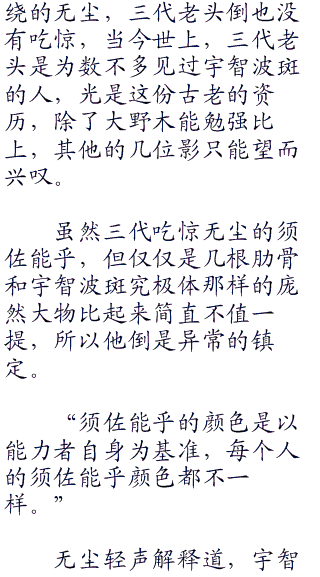 绕的无尘，三代老头倒也没
有吃惊，当今世上，三代老
头是为数不多见过宇智波斑
的人，光是这份古老的资
历，除了大野木能勉强比
上，其他的几位影只能望而
兴叹。
虽然三代吃惊无尘的须
佐能乎，但仅仅是几根肋骨
和宇智波斑究极体那样的庞
然大物比起来简直不值一
提，所以他倒是异常的镇
定。
“须佐能乎的颜色是以
能力者自身为基准，每个人
的须佐能乎颜色都不一
样。”
无尘轻声解释道，宇智